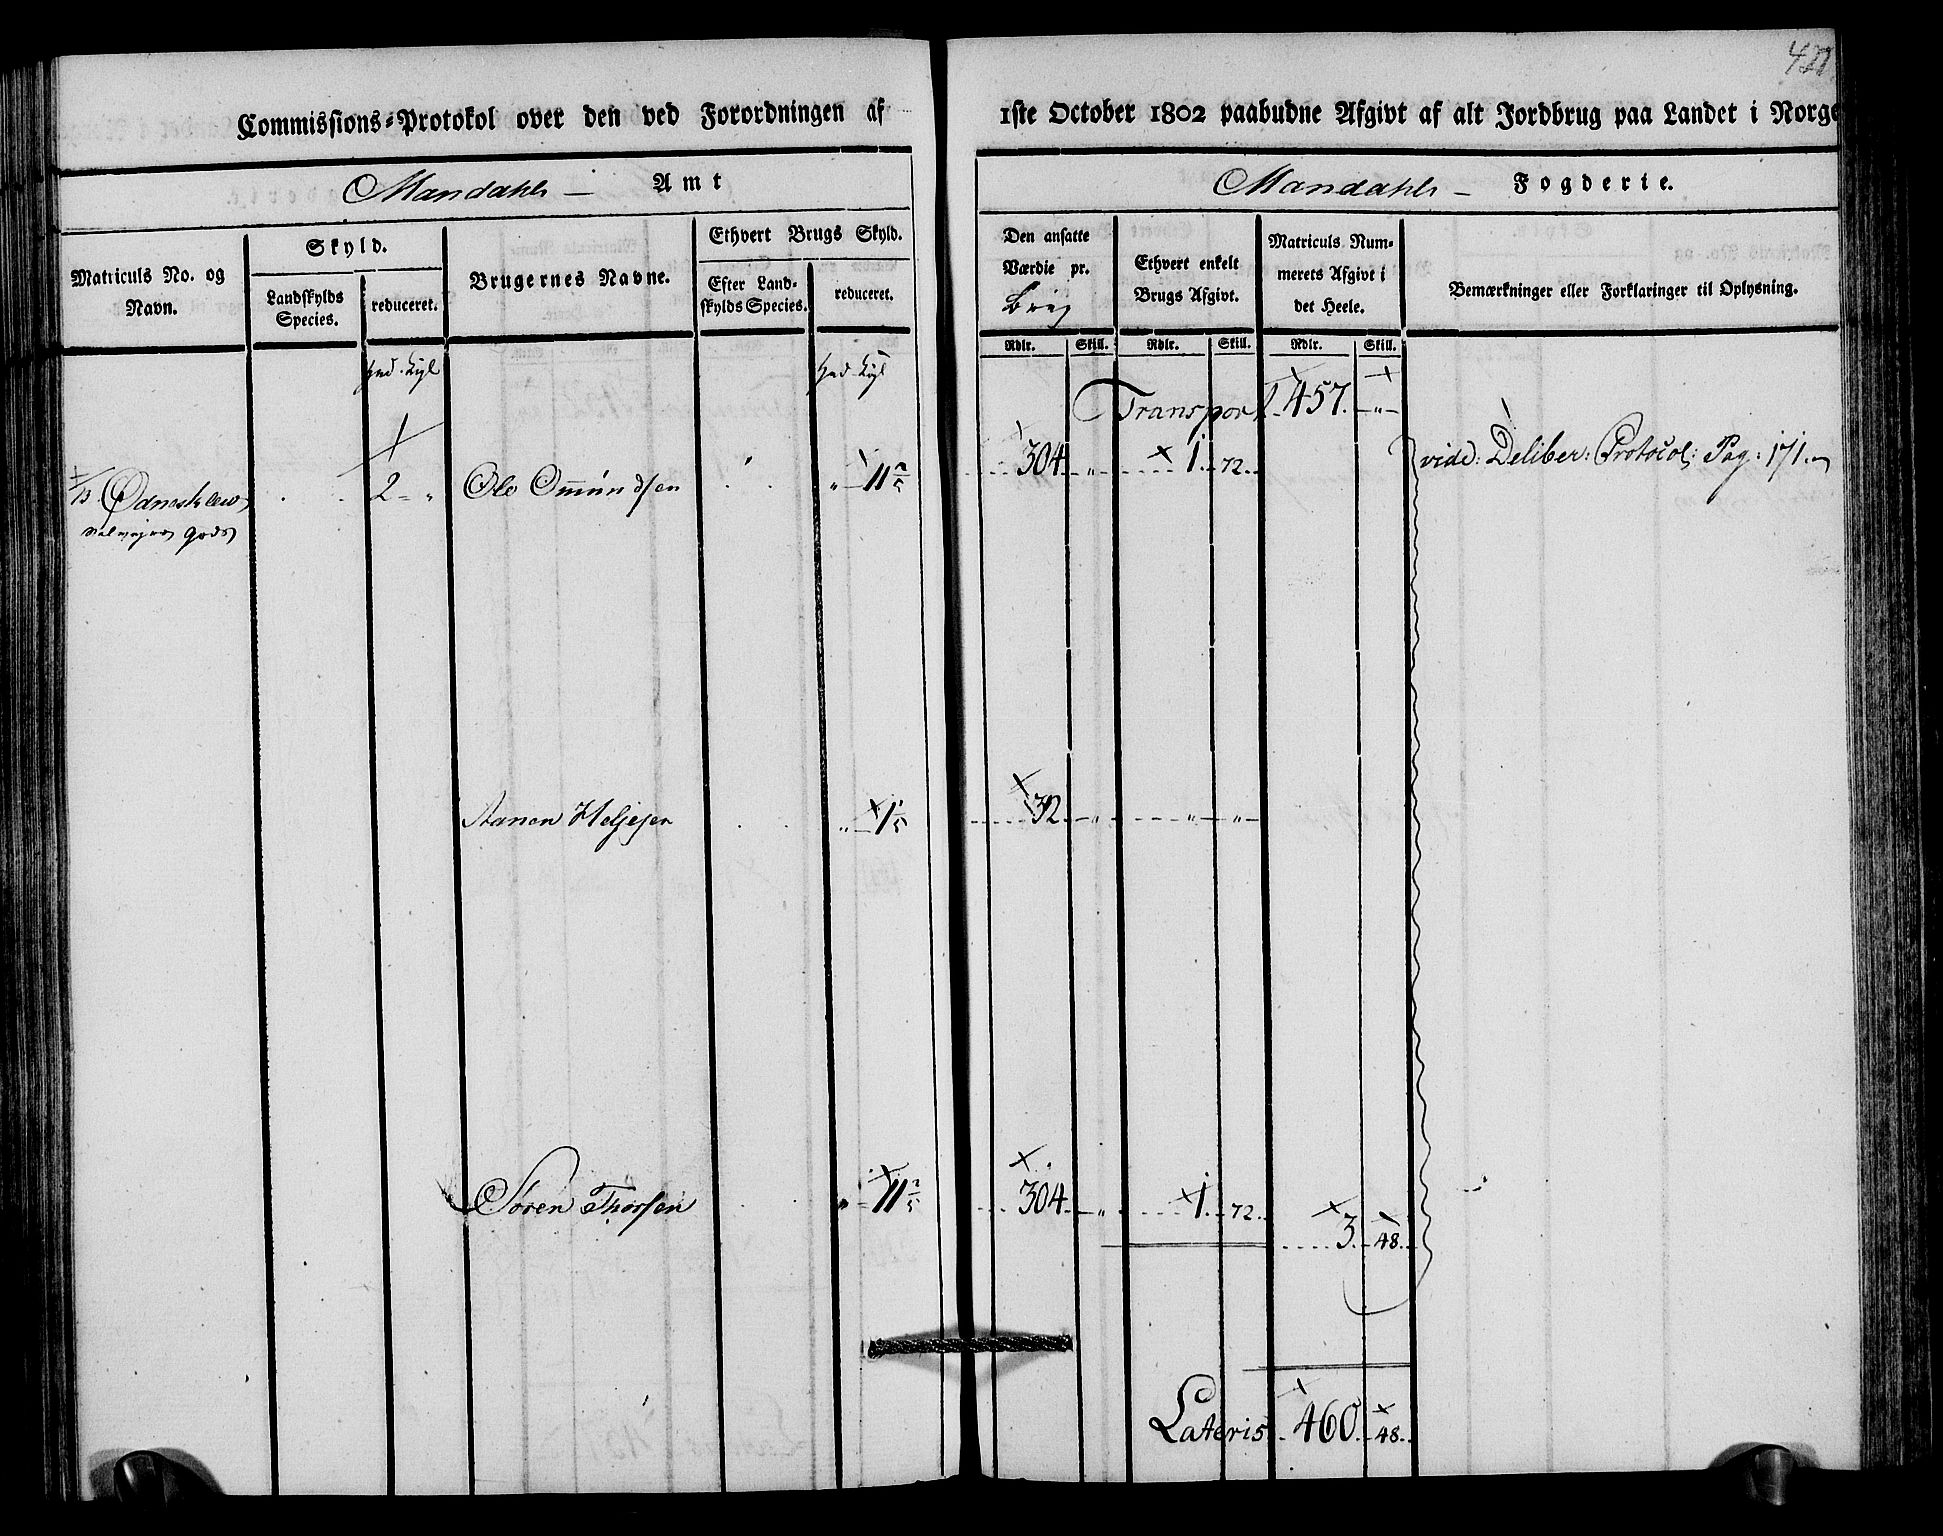 421
Commissions-Protokol over den ved Forordningen af 1ste October 1802 paabudne Afgivt af alt Jordbrug paa Landet i Norge
Mandahls Amt
Mandahls Fogderie.
Matriculs No. og Navn.
Skyld.
Landskylds Species.
reduceret.
Brugernes Navne.
Ethvert Brugs Skyld.
Efter Landskylds Species.
reduceret.
Den ansatte Værdie pr. Brug
Ethvert enkelt Brugs Afgivt.
Matriculs Nummerets Afgivt i det Heele.
Bemærkninger eller Forklaringer til Oplysning.
Rdlr. Skill. Rdlr. Skill. Rdlr. Skill.
Transport 457. -"-
2 - " Ole Omundsen " 11 2/5 304 " 1. 72. vide: Deliber: Protocol: Pag: 171.
gods
Aanen Helgesen " 1 1/5 32 " " "
Søren Thorsen " 11 2/5 304 " 1. 72. 3. 48.
Lateris 460. 48.